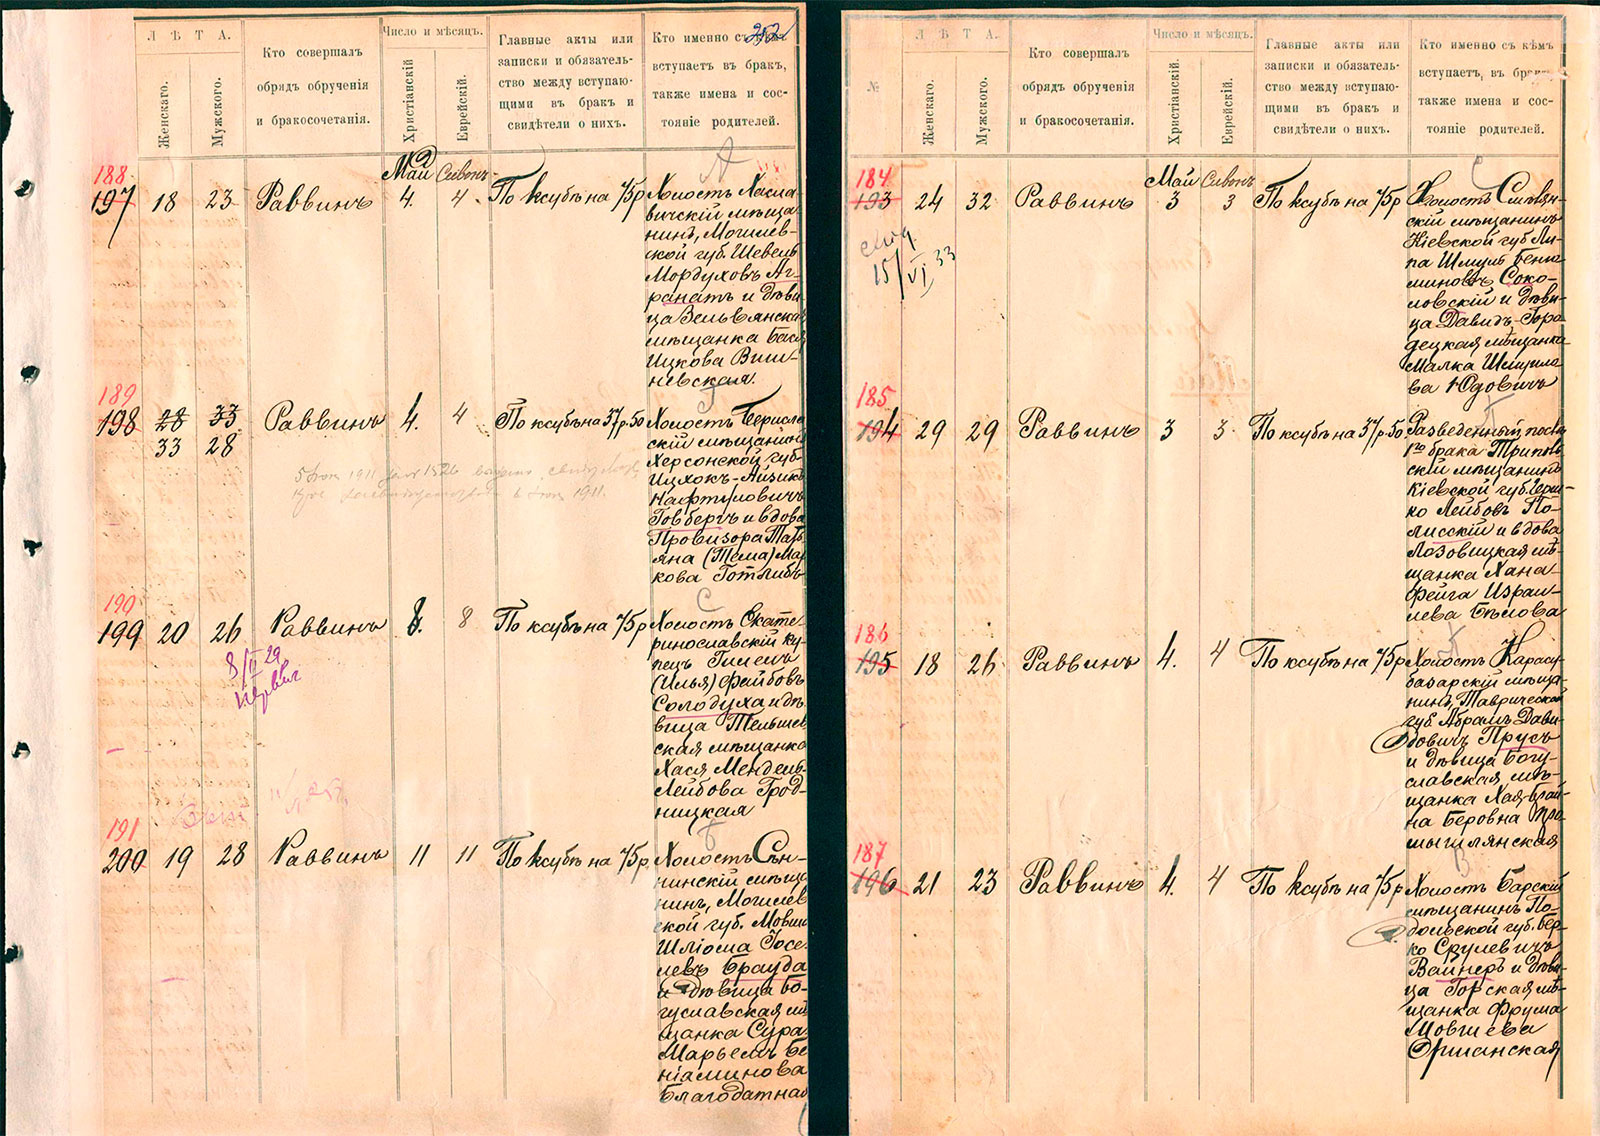 252
Л Ѣ Т А.
Женскаго.
Мужского.
Кто совершалъ
обрядъ обрученія
и бракосочетанія.
Число и мѣсяцъ.
Христіанскій
Еврейскій.
Главные акты или
записки и обязатель-
ство между вступаю-
щими въ бракъ и
свидѣтели о нихъ.
Кто именно съ
вступаетъ въ бракъ,
также имена и сос-
тояніе родителей.
188
Май Сивонъ
197 18 23 Раввинъ 4. 4. По ксубѣ на 75 р
Холостъ Хасла-
вичскій мѣща-
нинъ, Могилев-
ской губ. Шевель
Мордуховъ Аг-
ранатъ и дѣви-
ца Зельвянска
мѣщанка Бася
Ицкова Виш-
невская.
189
198 28 33 Раввинъ 4. 4 По ксубѣ на 37 р. 50
33 28
Холостъ Берисла
скій мѣщанинъ
Херсонской губ.
Ицхокъ-Айзикъ
Нафтуловичъ
Говбергъ и вдова
Провизора Тать
яна (Тема) Мар
кова Готлибъ
190
199 20 26 Раввинъ 8. 8 По ксубѣ на 75 р
8/II 29
первая
Холостъ Екате-
ринославскій ку-
пецъ Гилель
(Илья) Файбовъ
Солодуха и дѣ-
вица Тельшев
ская мѣщанка
Хася Мендель-
Лейбова Грод-
ницкая
191
200 19 28 Раввинъ 11 11 По ксубѣ на 75 р.
Холостъ Сѣн-
нинскій мѣща
нинъ, Могилев
ской губ. Мовша
Шліома Іосе-
левъ Брауда
и дѣвица Бо-
гуславская мѣ
щанка Сура
Марьемъ Бе
ніаминова
Благодатная
№
Л Ѣ Т А.
Женскаго.
Мужского.
Кто совершалъ
обрядъ обрученія
и бракосочетанія.
Число и мѣсяцъ.
Христіанскій.
Еврейскій.
Главные акты или
записки и обязатель-
ство между вступаю-
щими въ бракъ и
свидѣтели о нихъ.
Кто именно съ кѣмъ
вступаетъ, въ бракъ
также имена и сос-
тояніе родителей.
184
Май Сивонъ
193 24 32 Раввинъ 3 3 По ксубѣ на 75 р
15/VI 33
Холостъ Смѣлян-
скій мѣщанинъ
Кіевской губ. Ли-
па Шмуль Бенiа-
миновъ Соко-
ловскій и дѣви-
ца Давидъ-Горо
децкая мѣщанка
Малка Шмуйло-
ва Юдовичъ
185
194 29 29 Раввинъ 3 3 По ксубѣ на 37 р. 50.
Разведенный послѣ
1го брака Трипол
скій мѣщанинъ
Кіевской губ. Герш-
ко Лейбовъ По-
лисскій и вдова
Лозовицкая мѣ-
щанка Хана-
Фейга Израи-
лева Бѣлова
186
195 18 26 Раввинъ 4. 4 По ксубѣ на 75 р
Холостъ Карасу-
базарскій мѣща-
нинъ, Таврической
губ. Абрамъ Дави-
довичъ Прусъ
и дѣвица Богу-
славская мѣ-
щанка Хая-Брай-
на Беровна Про
мыгилянская
187
196 21 23 Раввинъ 4. 4 По ксубѣ на 75 р
Холостъ Барскій
мѣщанинъ По-
дольской губ. Бер-
ко Срулевичъ
Вайнеръ и дѣви-
ца Горская мѣ-
щанка Фрума
Мовшева
Оршанская